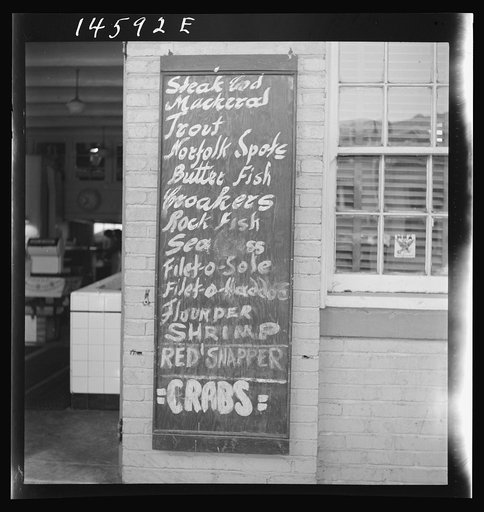 14592 E
Steak Cod
Mackerel
Trout
Norfolk Spots
Butter Fish
Croakers
Rock Fish
Sea ss
Filet-o-Sole
Filet-o-Haddock
Flounder
SHRIMP
RED SNAPPER
=CRABS=